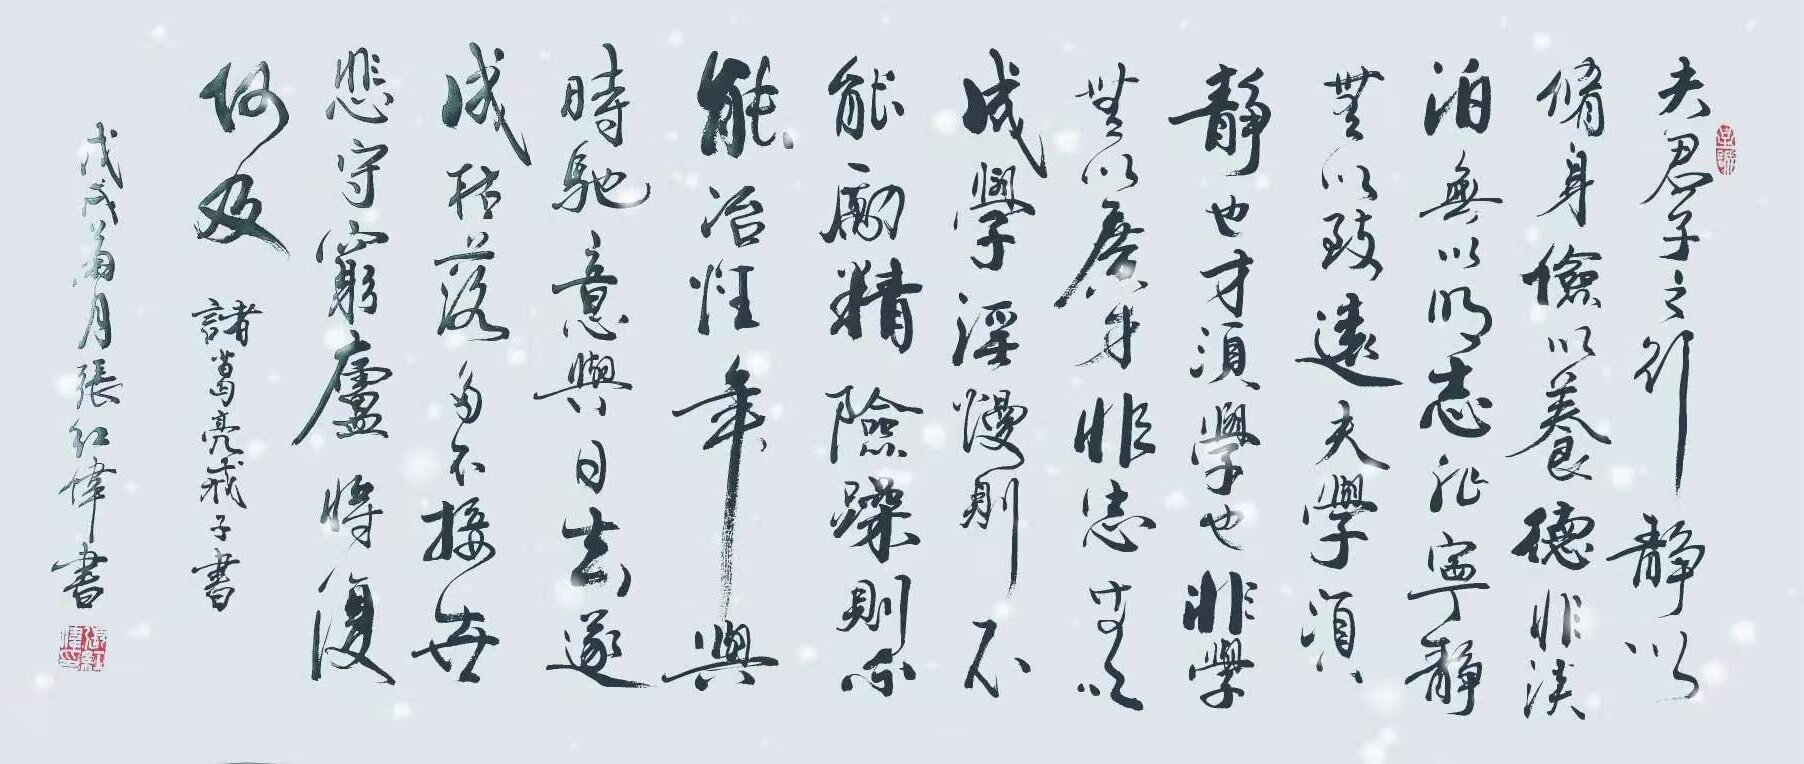 夫君子之行靜以
脩身儉以養德非淡
泊無以明志非寧靜
無以致遠夫學須
靜也才須學也非學
無以廣才非志無以
成學淫慢則不
能勵精險躁則不
能冶性年與
時馳意與日去遂
成枯落多不接世
悲守窮廬將復
何及 諸葛亮戒子書
戊戌菊月張紅偉書
張紅偉印